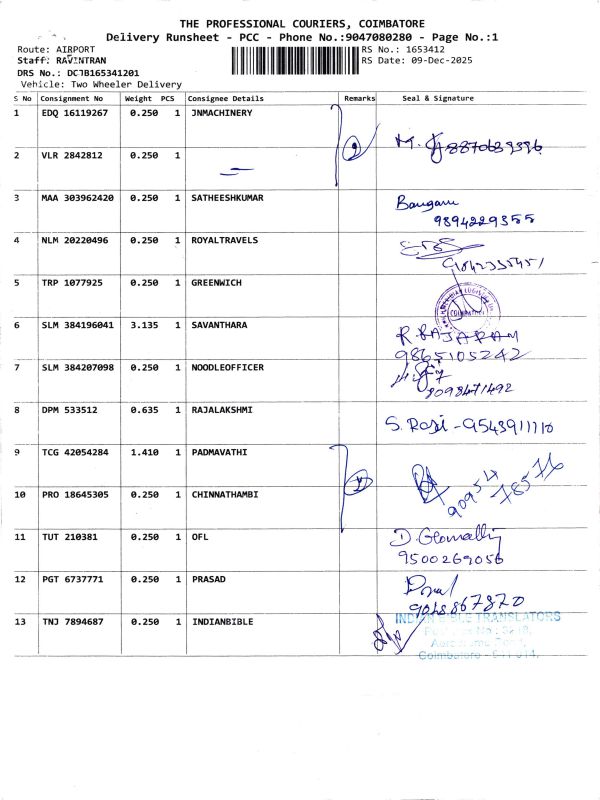 THE PROFESSIONAL COURIERS, COIMBATORE
Delivery Runsheet - PCC - Phone No.:9047080280 - Page No.:1
Route: AIRPORT RS No.: 1653412
Staff: RAVINTRAN RS Date: 09-Dec-2025
DRS No.: DCJB165341201
Vehicle: Two Wheeler Delivery
S No Consignment No Weight PCS Consignee Details Remarks Seal & Signature
1 EDQ 16119267 0.250 1 JNMACHINERY
2 VLR 2842812 0.250 1
3 MAA 303962420 0.250 1 SATHEESHKUMAR
9894229355
4 NLM 20220496 0.250 1 ROYALTRAVELS
5 TRP 1077925 0.250 1 GREENWICH
6 SLM 384196041 3.135 1 SAVANTHARA RAJARAM
9865105242
7 SLM 384207098 0.250 1 NOODLEOFFICER
8098471492
8 DPM 533512 0.635 1 RAJALAKSHMI S. Rosi - 9543911110
9 TCG 42054284 1.410 1 PADMAVATHI
90954 78576
10 PRO 18645305 0.250 1 CHINNATHAMBI
11 TUT 210381 0.250 1 OFL
9500269056
12 PGT 6737771 0.250 1 PRASAD
13 TNJ 7894687 0.250 1 INDIANBIBLE INDIAN BIBLE TRANSLATORS